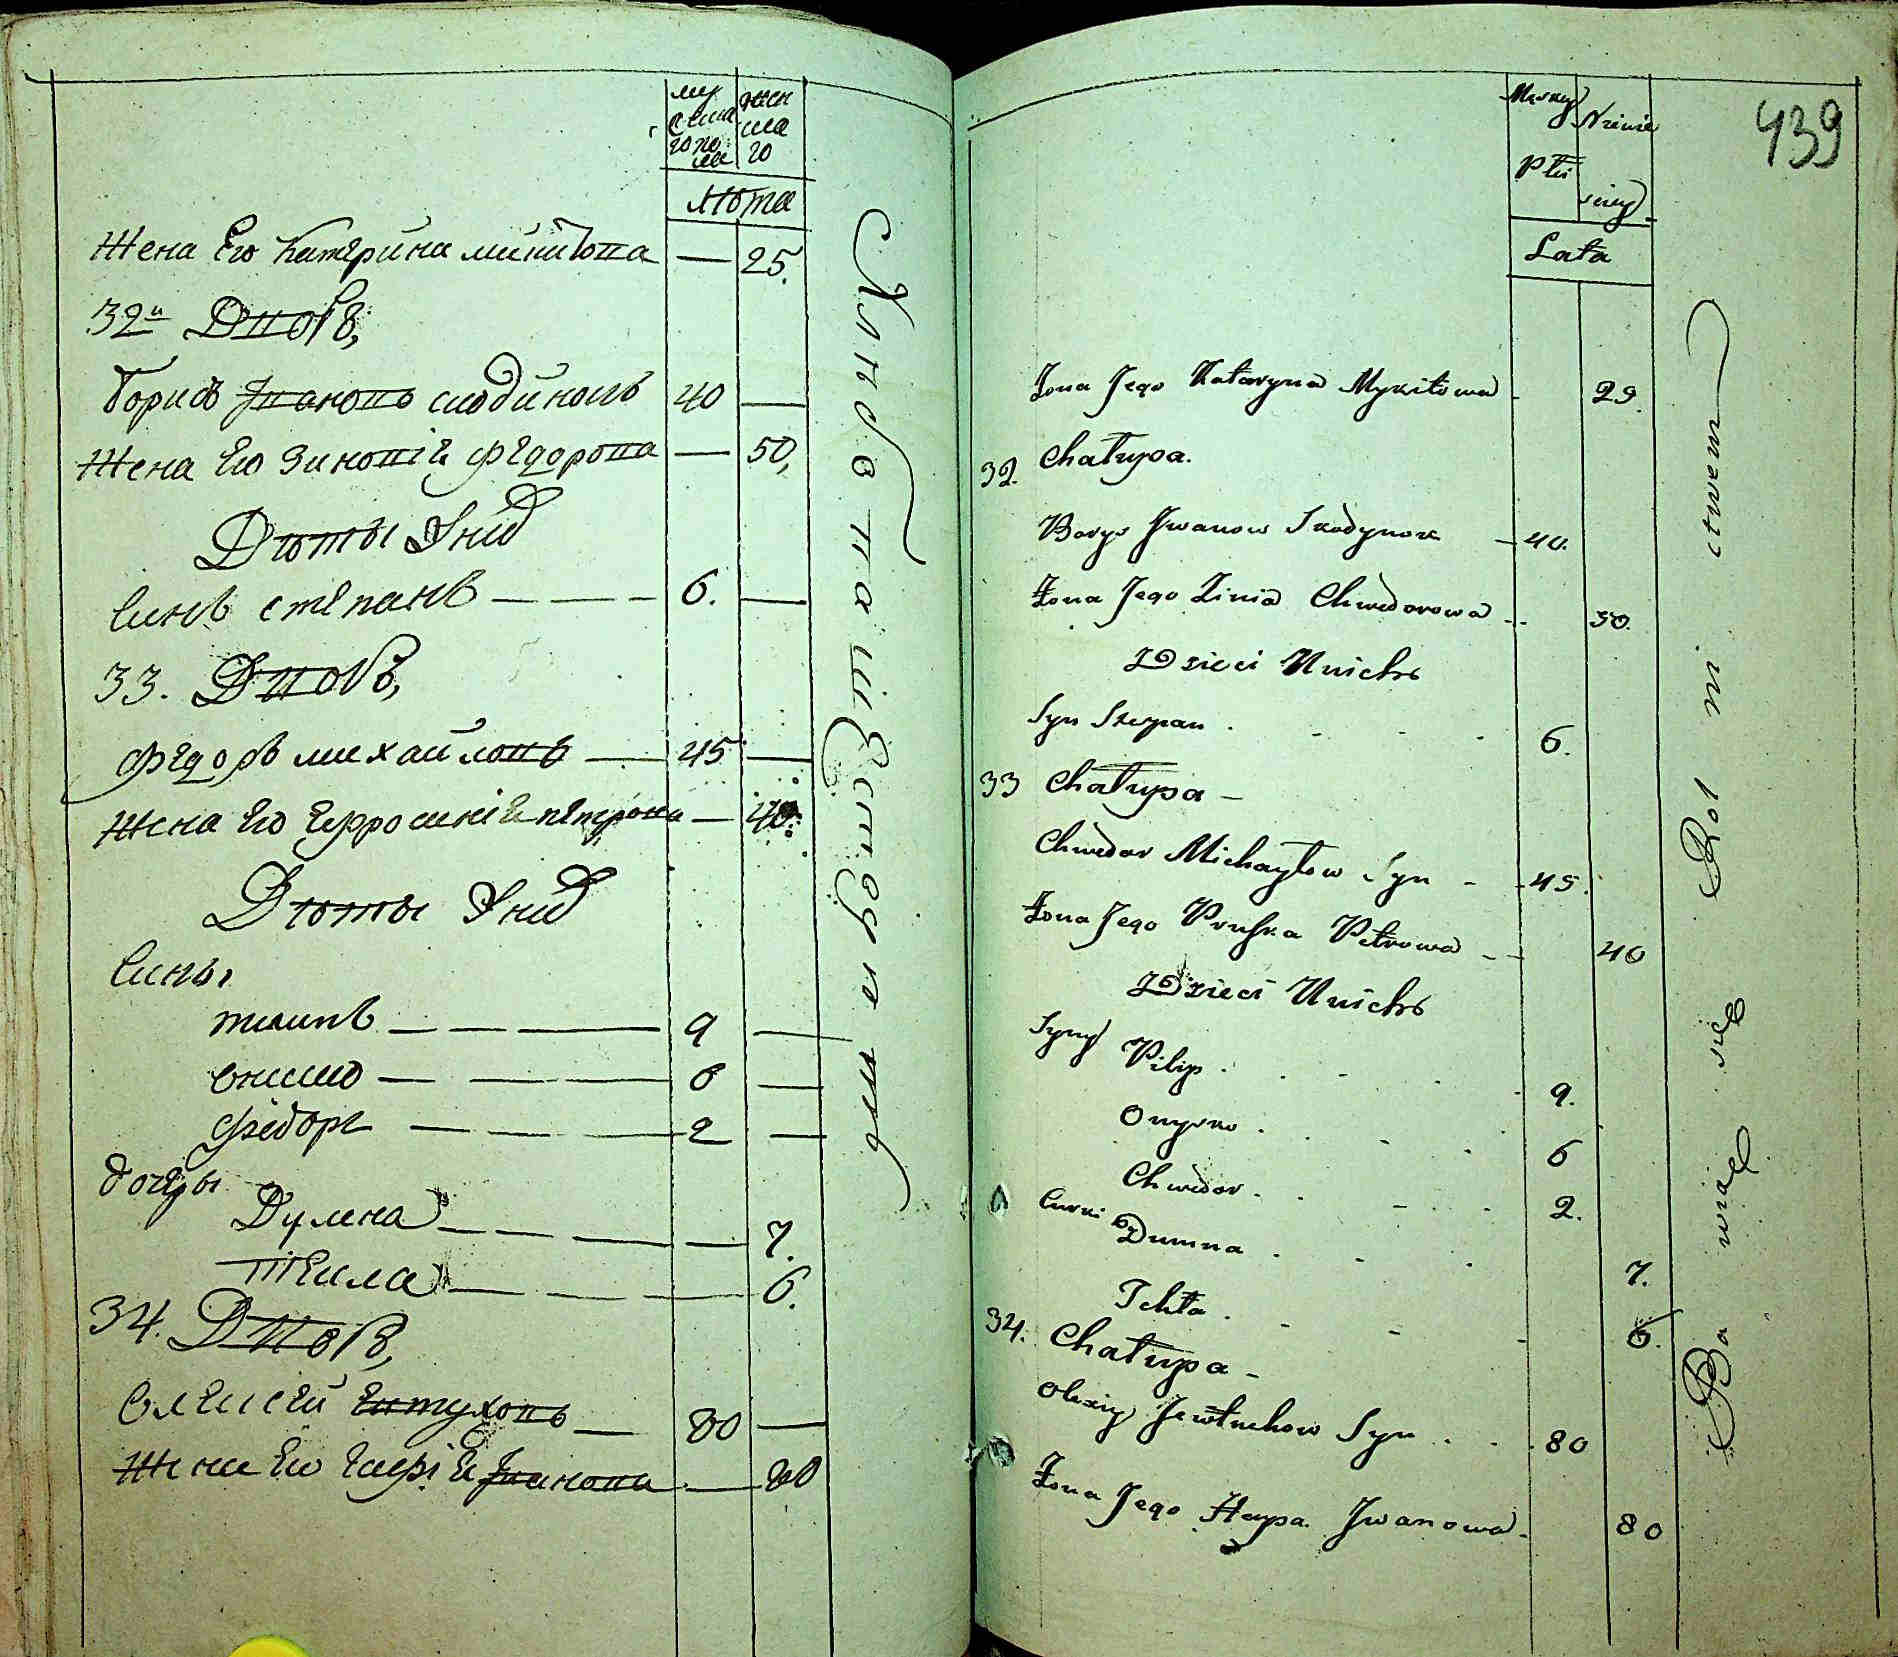 му
жеска
го по
ла
жен
ска
го
лѣта
Жена Его Катерина микитова — 25.
32й Дворъ,
борисъ Ивановъ скодинокъ 40 —
Жена Его Зиновія Федорова — 50,
Дѣты Ихъ
Синъ степанъ — — — 6. —
33. Дворъ,
Федоръ михайловъ — 45 —
Жена Его Ефросинія петрова — 40
Дѣты Ихъ
Сины
пилипъ — — — 9 —
Ониско — — — 6 —
Федоръ — — — 2 —
дочеры
Думна — — — — 7.
Текла — — — — 6.
34. Дворъ,
Олексей Евтуховъ — 80 —
Жена Его Гапія Иванова — 80
Хлѣбопашествуютъ
439
Męzkey Płci
Niewie sciey
Lata
Żona Jego Kataryna Mykitowa - 29.
32. Chałupa.
Borys Iwanow Skodynok - 40.
Żona Jego Zinia Chwedorowa - 50.
Dzieci Unichs
Syn Stepan . - - - 6.
33 Chałupa -
Chwedor Michayłow Syn - - 45.
Żona Jego Pruska Petrowa - - 40
Dzieci Unichs
Syny Pilip . . - - - 9.
Onysko . . - - 6
Chwedor . . - - - 2.
Curki Dumna . - - - 7.
Tekla . - - - 6.
34. Chałupa -
Olexiy Jewtuchow Syn . . . 80
Żona Jego Hapa Iwanowa. 80
Ba wią się Rol ni ctwem